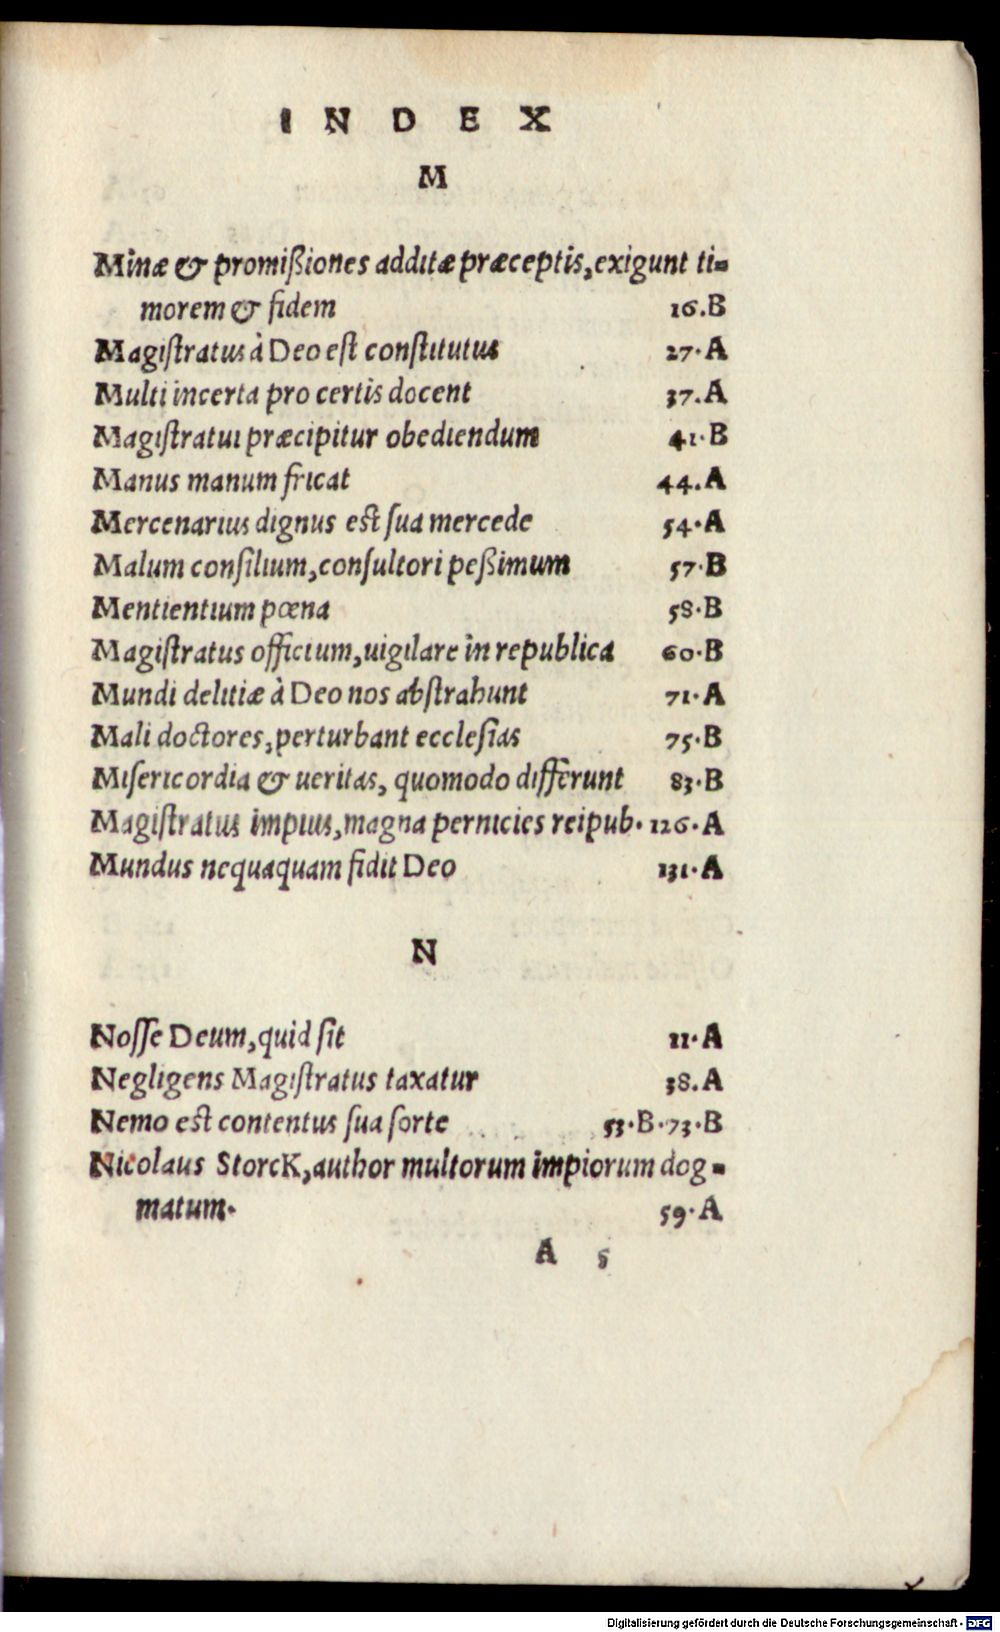 INDEX
M
Minæ & promißiones additæ præceptis, exigunt ti-
morem & fidem 16.B
Magiſtratus à Deo eſt conſtitutus 27.A
Multi incerta pro certis docent 37.A
Magiſtratui præcipitur obediendum 41.B
Manus manum fricat 44.A
Mercenarius dignus eſt ſua mercede 54.A
Malum conſilium, conſultori peßimum 57.B
Mentientium pœna 58.B
Magiſtratus officium, uigilare in republica 60.B
Mundi delitiæ à Deo nos abſtrahunt 71.A
Mali doctores, perturbant eccleſias 75.B
Miſericordia & ueritas, quomodo differunt 83.B
Magiſtratus impius, magna pernicies reipub. 126.A
Mundus nequaquam fidit Deo 131.A
N
Noſſe Deum, quid ſit 11.A
Negligens Magiſtratus taxatur 38.A
Nemo eſt contentus ſua ſorte 53.B.73.B
Nicolaus StorcK, author multorum impiorum dog-
matum. 59.A
A 5
Digitalisierung gefördert durch die Deutsche Forschungsgemeinschaft - DFG